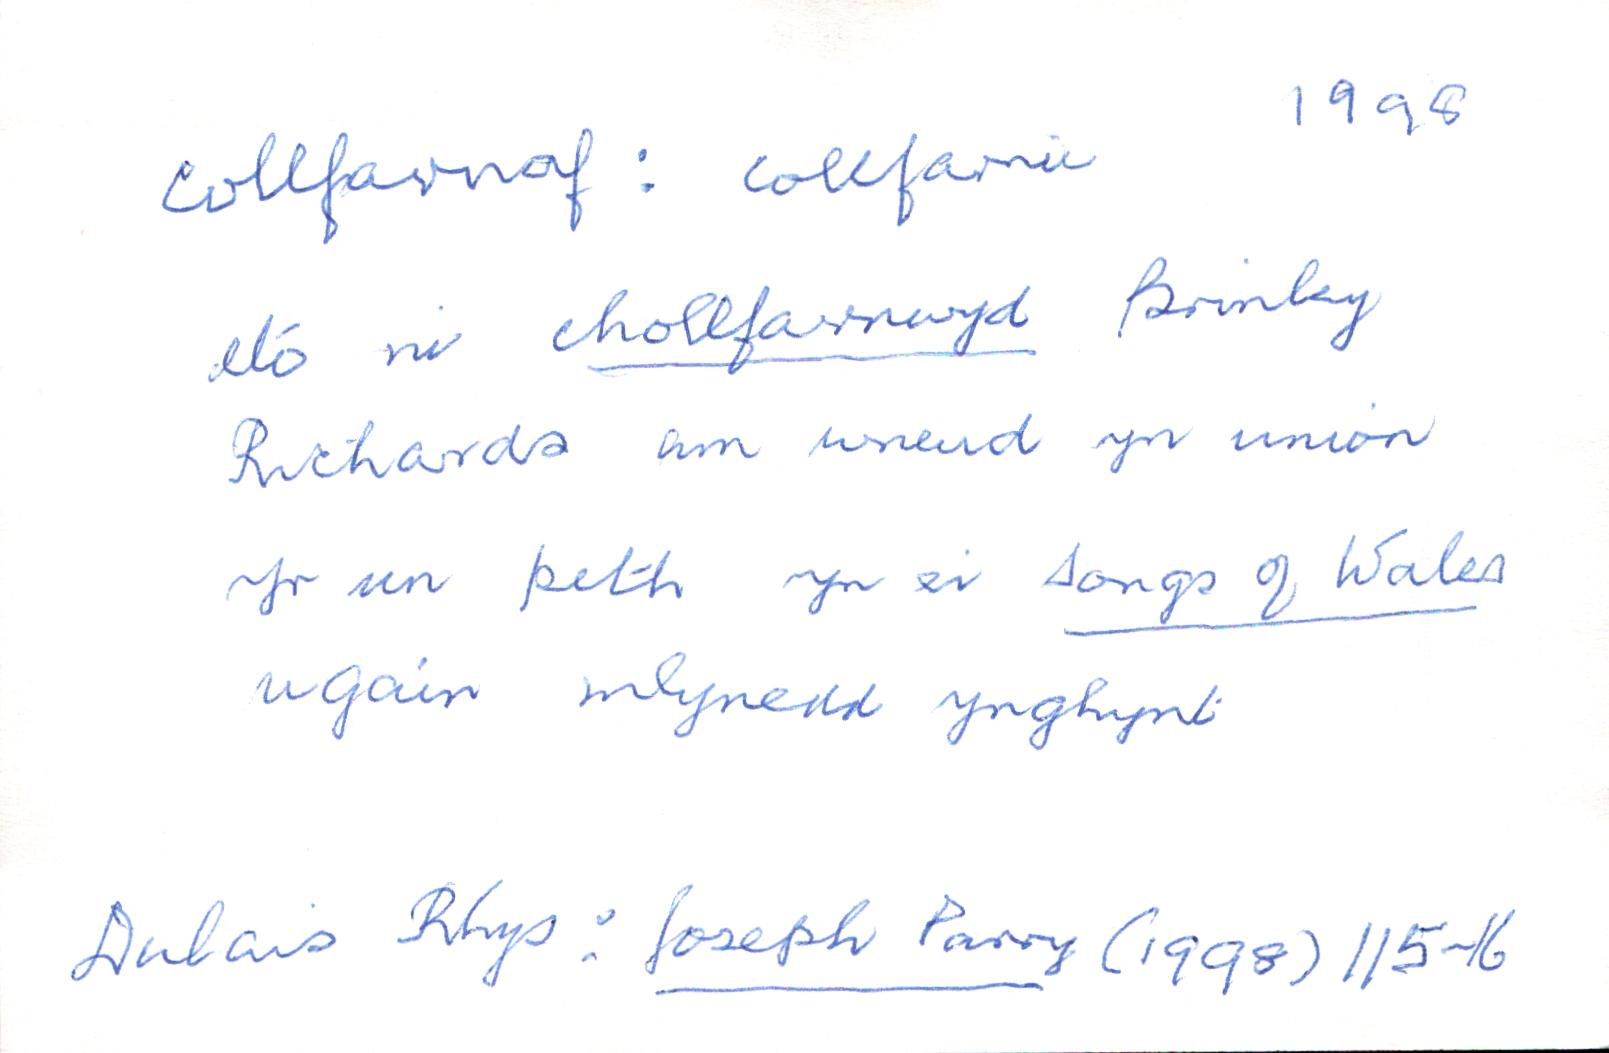 1998
collfarnaf : collfarnu
eto ni chollfarnwyd Brinley
Richards am wneud yn union
yr un peth yn ei Songs of Wales
ugain mlynedd ynghynt
Dulais Rhys : Joseph Parry (1998) 115-16